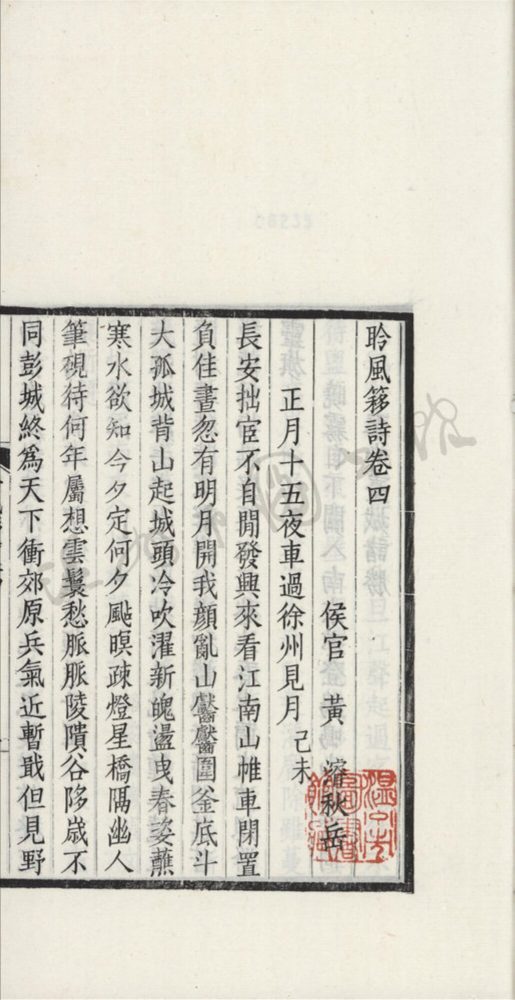 聆風簃詩卷四
侯官 黃 濬秋岳
正月十五夜車過徐州見月 己未
長安拙宦不自閒發興來看江南山帷車閉置
負佳晝忽有明月開我顏亂山齾齾圍釜底斗
大孤城背山起城頭冷吹濯新魄盪曳春姿蘸
寒水欲知今夕定何夕颭暝疎燈星橋隔幽人
筆硯待何年屬想雲鬟愁脈脈陵隤谷陊歲不
同彭城終為天下衝郊原兵氣近暫戢但見野